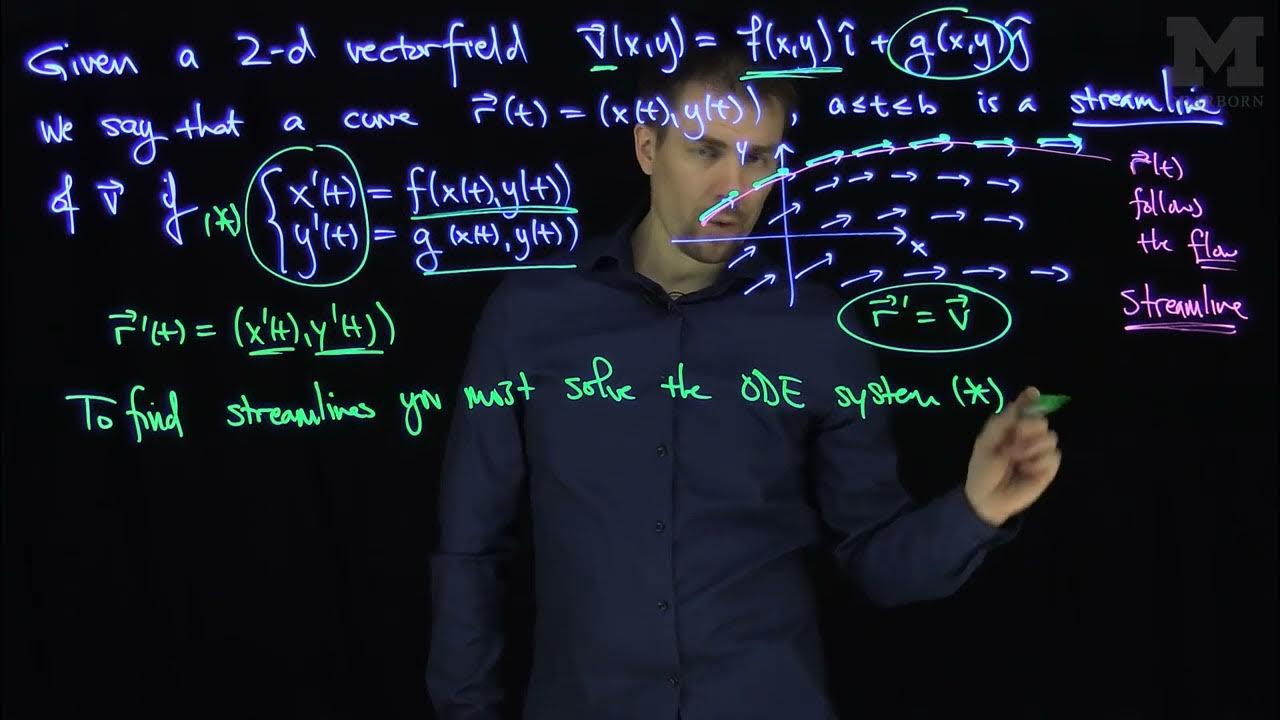 Given a 2-d vectorfield v⃗(x,y) = f(x,y) î + g(x,y) ĵ
we say that a curve r⃗(t) = (x(t), y(t)) , a≤t≤b is a streamline
of v⃗ if (*) { x'(t) = f(x(t), y(t))
y'(t) = g(x(t), y(t))
y
x
r⃗(t)
follows
the flow
streamline
r⃗' = v⃗
r⃗'(t) = (x'(t), y'(t))
To find streamlines you must solve the ODE system (*)
M